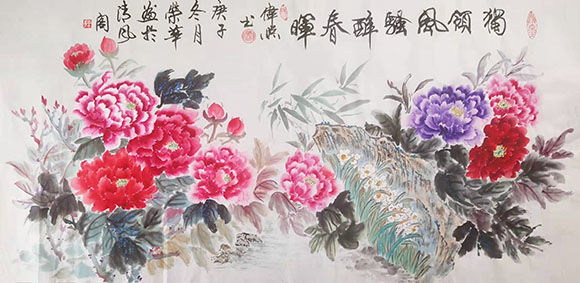 獨領風騷醉春暉
庚子
冬月
榮華
畫於
清風
閣